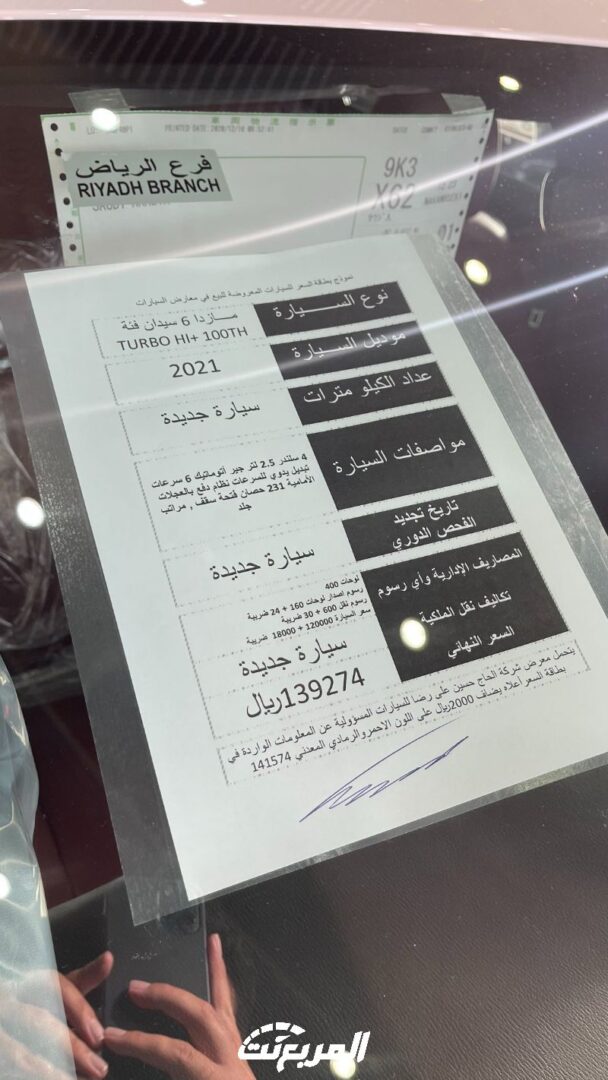 PRINTED DATE 2020/12/10
فرع الرياض
RIYADH BRANCH
9K3
X62
01
نموذج بطاقة السعر للسيارات المعروضة للبيع في معارض السيارات
نوع السيارة
مازدا 6 سيدان فئة
TURBO HI+ 100TH
موديل السيارة
2021
عداد الكيلو مترات
سيارة جديدة
مواصفات السيارة
4 سلندر 2.5 لتر جير أتوماتيك 6 سرعات
تبديل يدوي للسرعات نظام دفع بالعجلات
الأمامية 231 حصان فتحة سقف , مراتب
جلد
تاريخ تجديد
الفحص الدوري
سيارة جديدة
المصاريف الإدارية وأي رسوم
لوحات 400
رسوم اصدار لوحات 160 + 24 ضريبة
رسوم نقل 600 + 30 ضريبة
سعر السيارة 120000 + 18000 ضريبة
تكاليف نقل الملكية
سيارة جديدة
السعر النهائي
139274ريال
يتحمل معرض شركة الحاج حسين على رضا للسيارات المسؤولية عن المعلومات الواردة في
بطاقة السعر أعلاه يضاف 2000ريال على اللون الاحمر والرمادي المعدني 141574
المربع نت